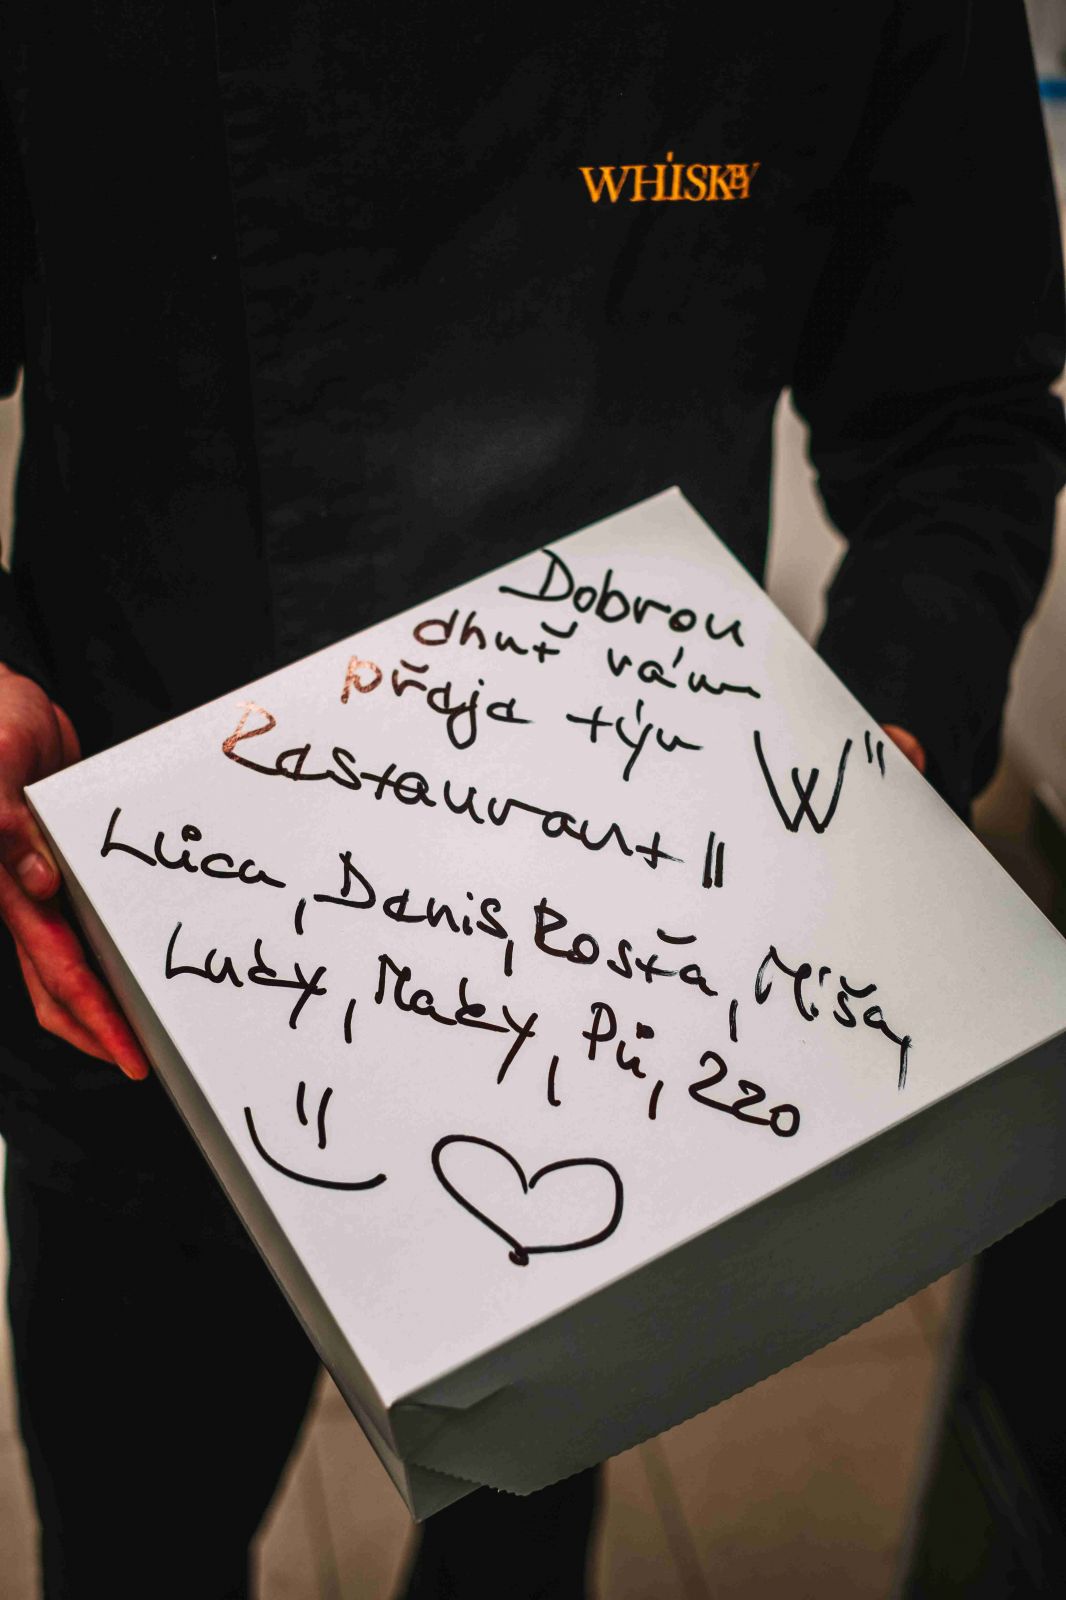 WHISKY
Dobrou
dhuť vám
přeje tým W"
Restaurant ||
Lůca, Denis, Rosťa, Míša,
Lucky, Macky, Pů, 220